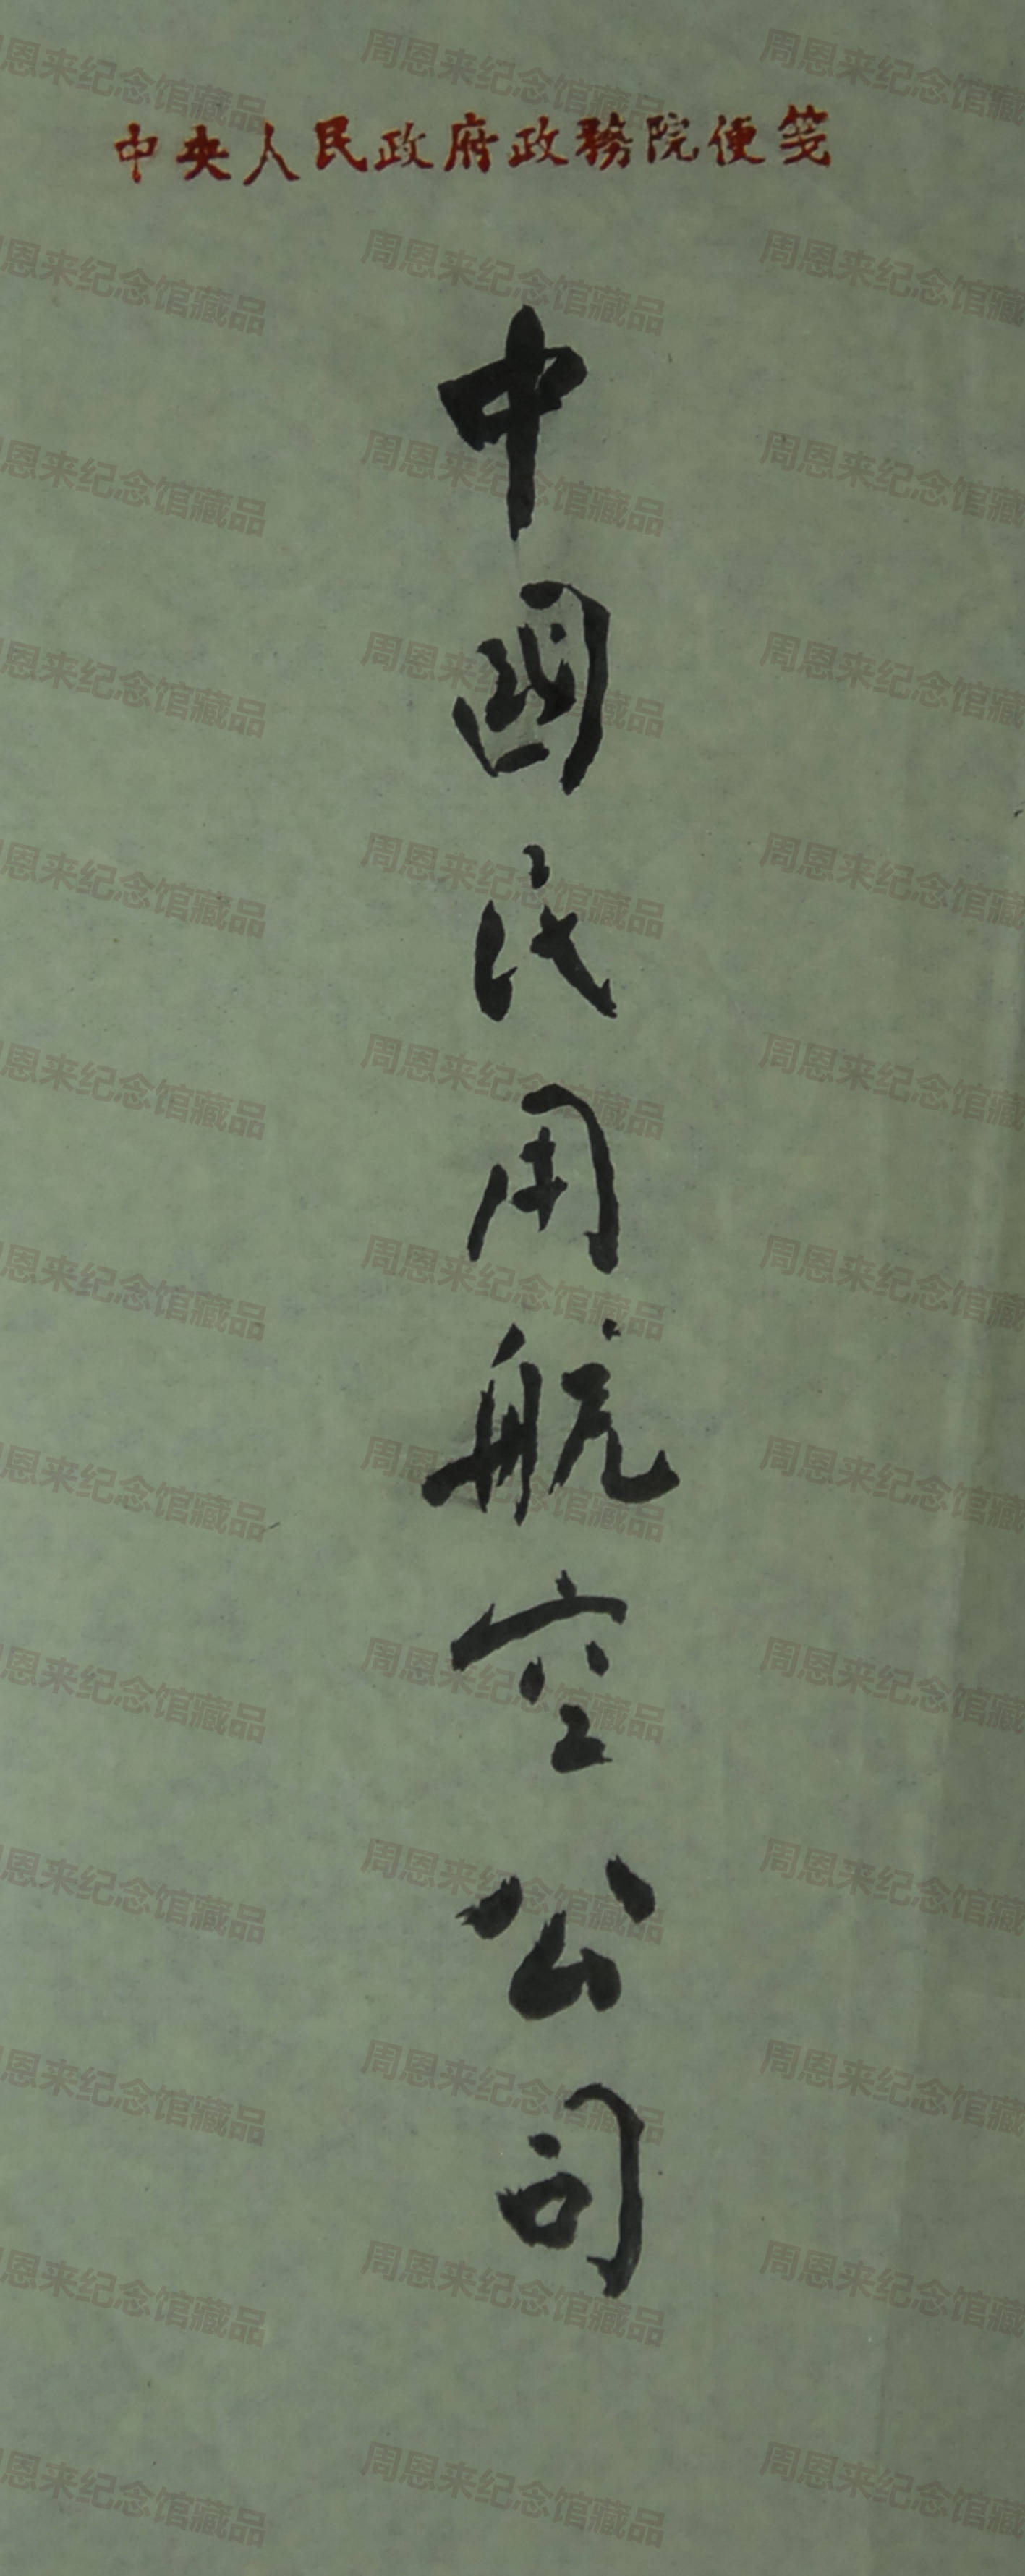 中央人民政府政務院便箋
中國民用航空公司
周恩来纪念馆藏品